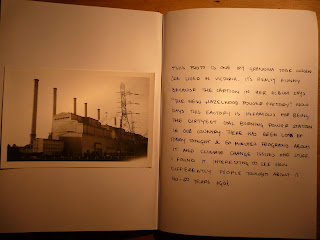 THIS PHOTO IS ONE MY GRANDMA TOOK WHEN
SHE LIVED IN VICTORIA. IT'S REALLY FUNNY
BECAUSE THE CAPTION IN HER ALBUM SAYS
"THE NEW HAZELWOOD POWER FACTORY". NOW
DAYS THIS FACTORY IS INFAMOUS FOR BEING
THE DIRTYEST COAL BURNING POWER STATION
IN OUR COUNTRY. THERE HAS BEEN LOTS OF
TODAY TONIGHT & 60 MINUTES PROGRAMS ABOUT
IT AND CLIMATE CHANGE ISSUES AND STUFF
I FOUND IT INTERESTING TO SEE HOW
DIFFERENTLY PEOPLE THOUGHT ABOUT IT
YEARS AGO!